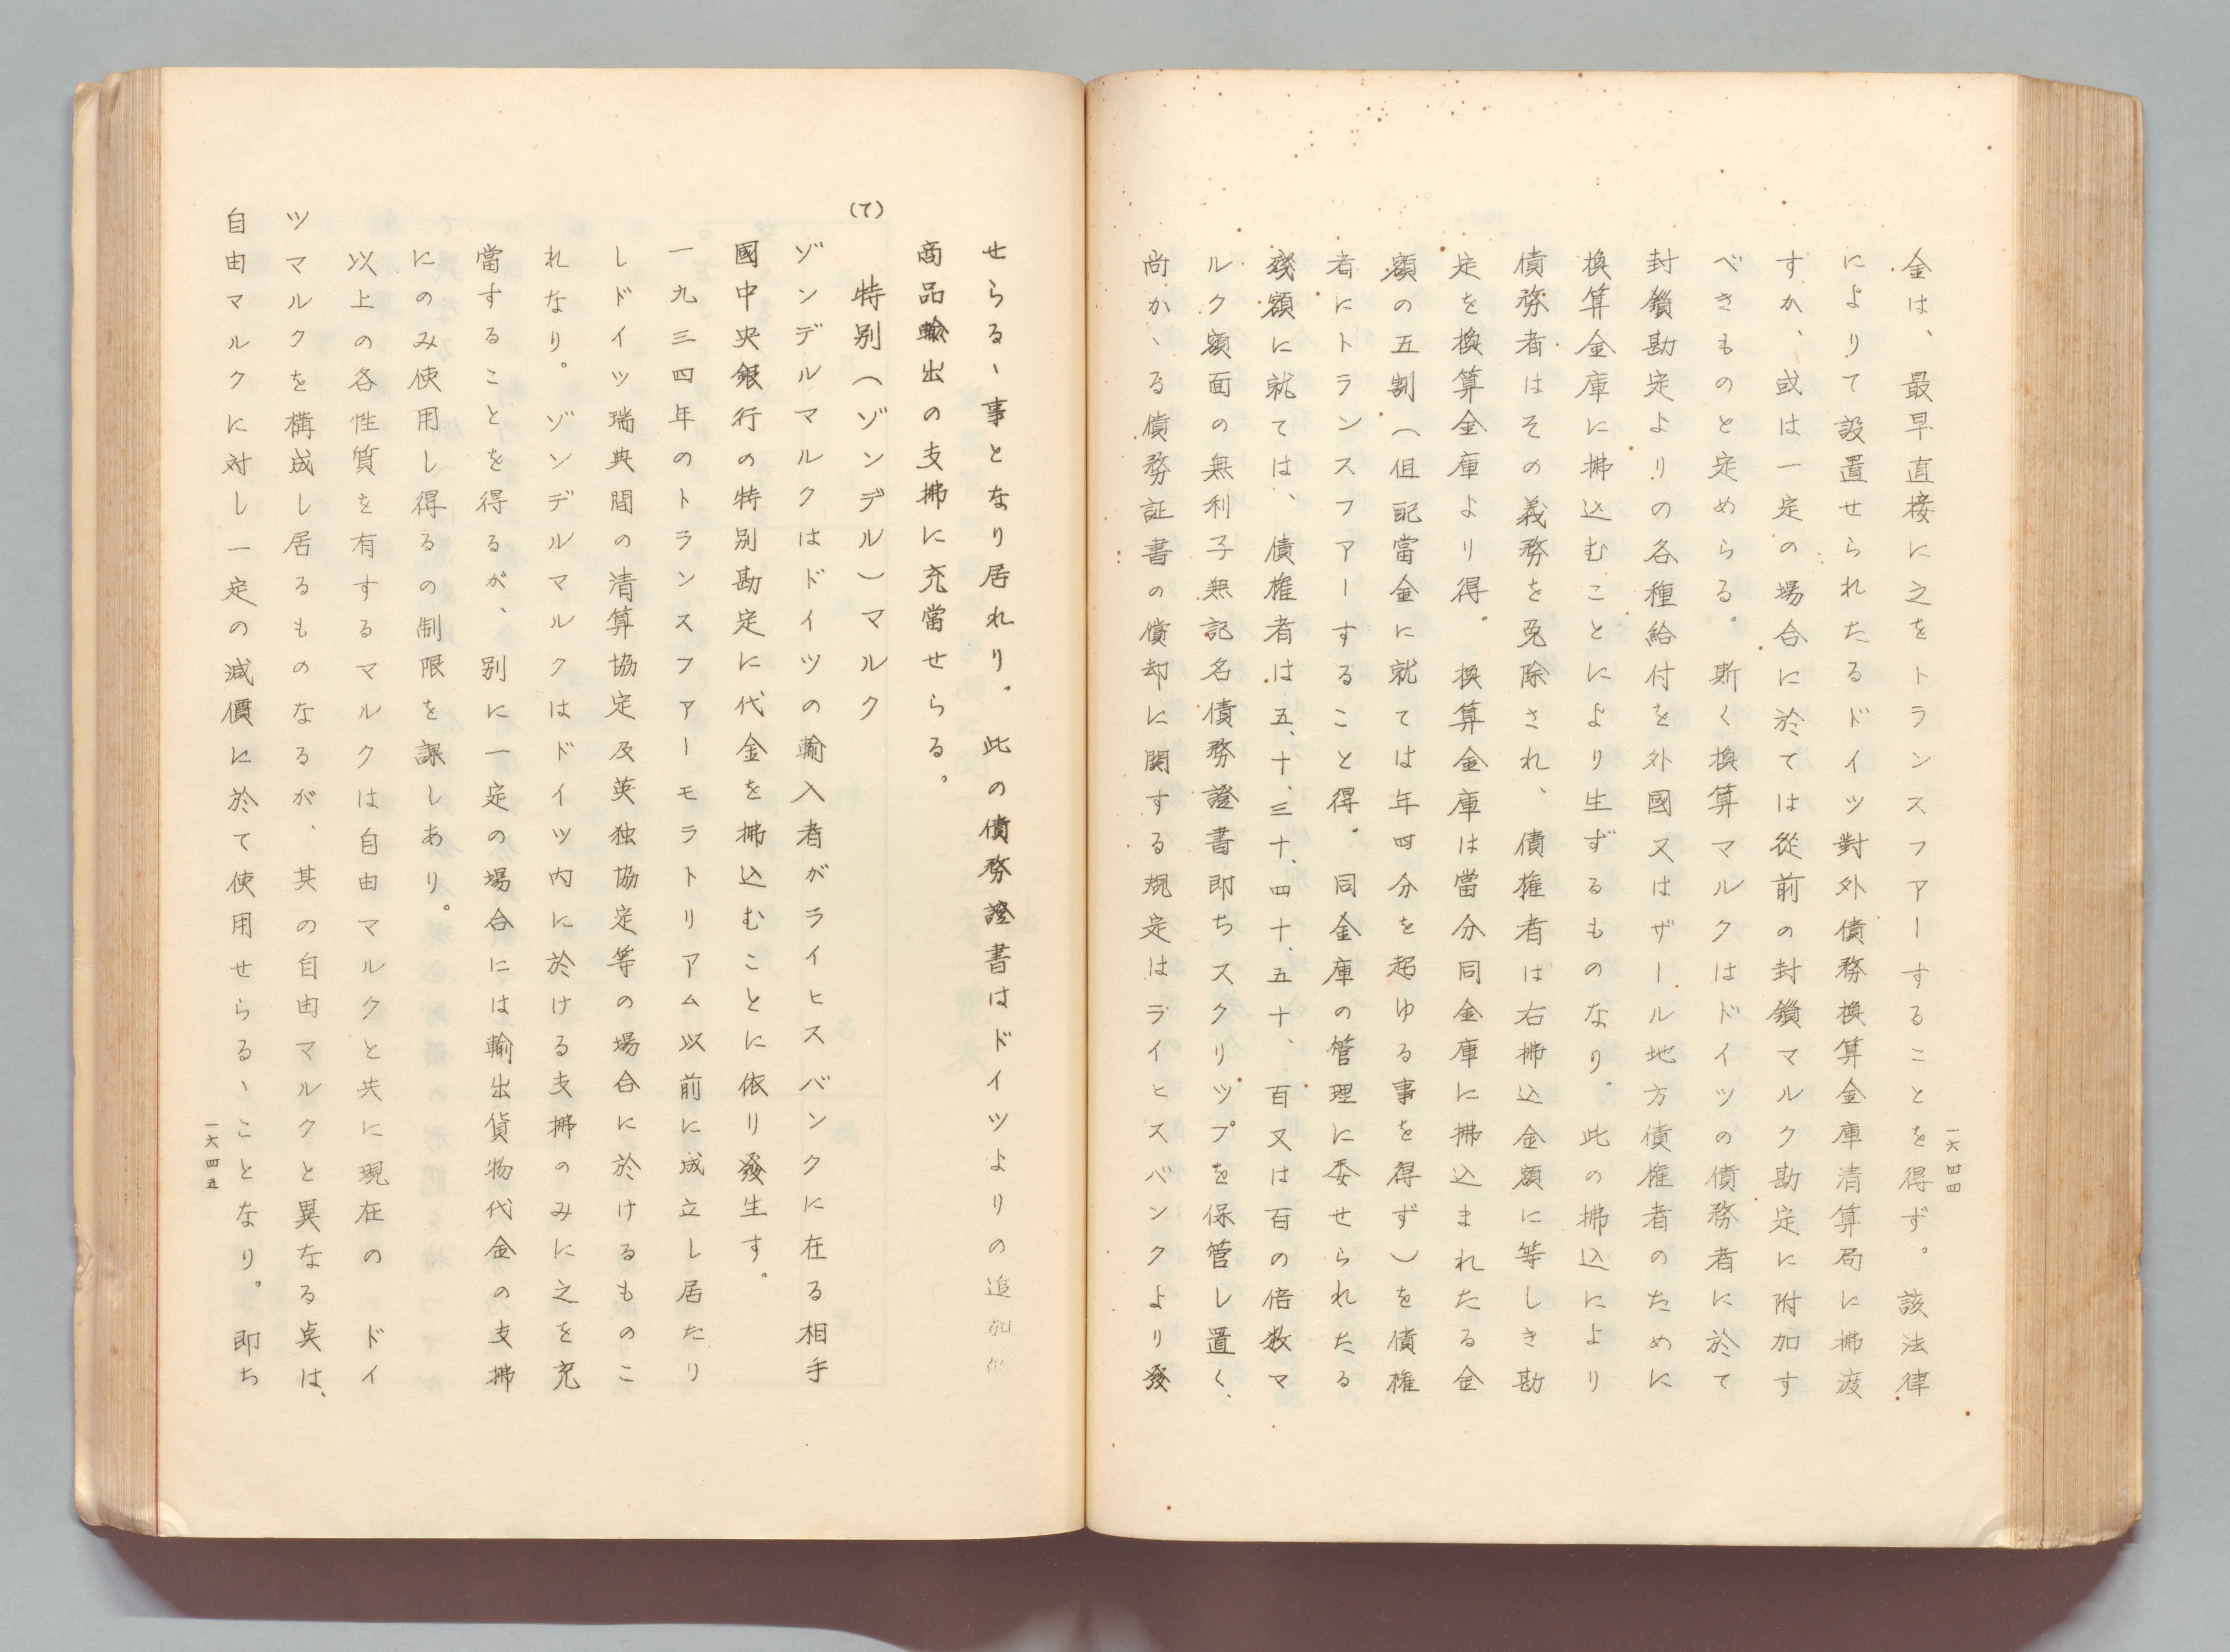 金は、最早直接に之をトランスファーすることを得ず。該法律
によりて設置せられたるドイツ對外債務換算金庫清算局に拂渡
すか、或は一定の場合に於ては從前の封鎖マルク勘定に附加す
べきものと定めらる。斯く換算マルクはドイツの債務者に於て
封鎖勘定よりの各種給付を外國又はザール地方債権者のために
換算金庫に拂込むことにより生ずるものなり。此の拂込により
債務者はその義務を免除され、債権者は右拂込金額に等しき勘
定を換算金庫より得。換算金庫は當分同金庫に拂込まれたる金
額の五割（但配當金に就ては年四分を超ゆる事を得ず）を債権
者にトランスファーすること得。同金庫の管理に委せられたる
残額に就ては、債権者は五、十、三十、四十、五十、百又は百の倍数マ
ルク額面の無利子無記名債務證書即ちスクリツプを保管し置く、
尚かゝる債務証書の償却に関する規定はライヒスバンクより發
一六四四
せらるゝ事となり居れり。此の債務證書はドイツよりの追加
商品輸出の支拂に充當せらる。
(て)　特別（ゾンデル）マルク
ゾンデルマルクはドイツの輸入者がライヒスバンクに在る相手
國中央銀行の特別勘定に代金を拂込むことに依り發生す。
一九三四年のトランスファーモラトリアム以前に成立し居たり
しドイツ瑞典間の清算協定及英独協定等の場合に於けるものこ
れなり。ゾンデルマルクはドイツ内に於ける支拂のみに之を充
當することを得るが、別に一定の場合には輸出貨物代金の支拂
にのみ使用し得るの制限を課しあり。
以上の各性質を有するマルクは自由マルクと共に現在のドイ
ツマルクを構成し居るものなるが、其の自由マルクと異なる点は、
自由マルクに対し一定の減價に於て使用せらるゝことなり。即ち
一六四五